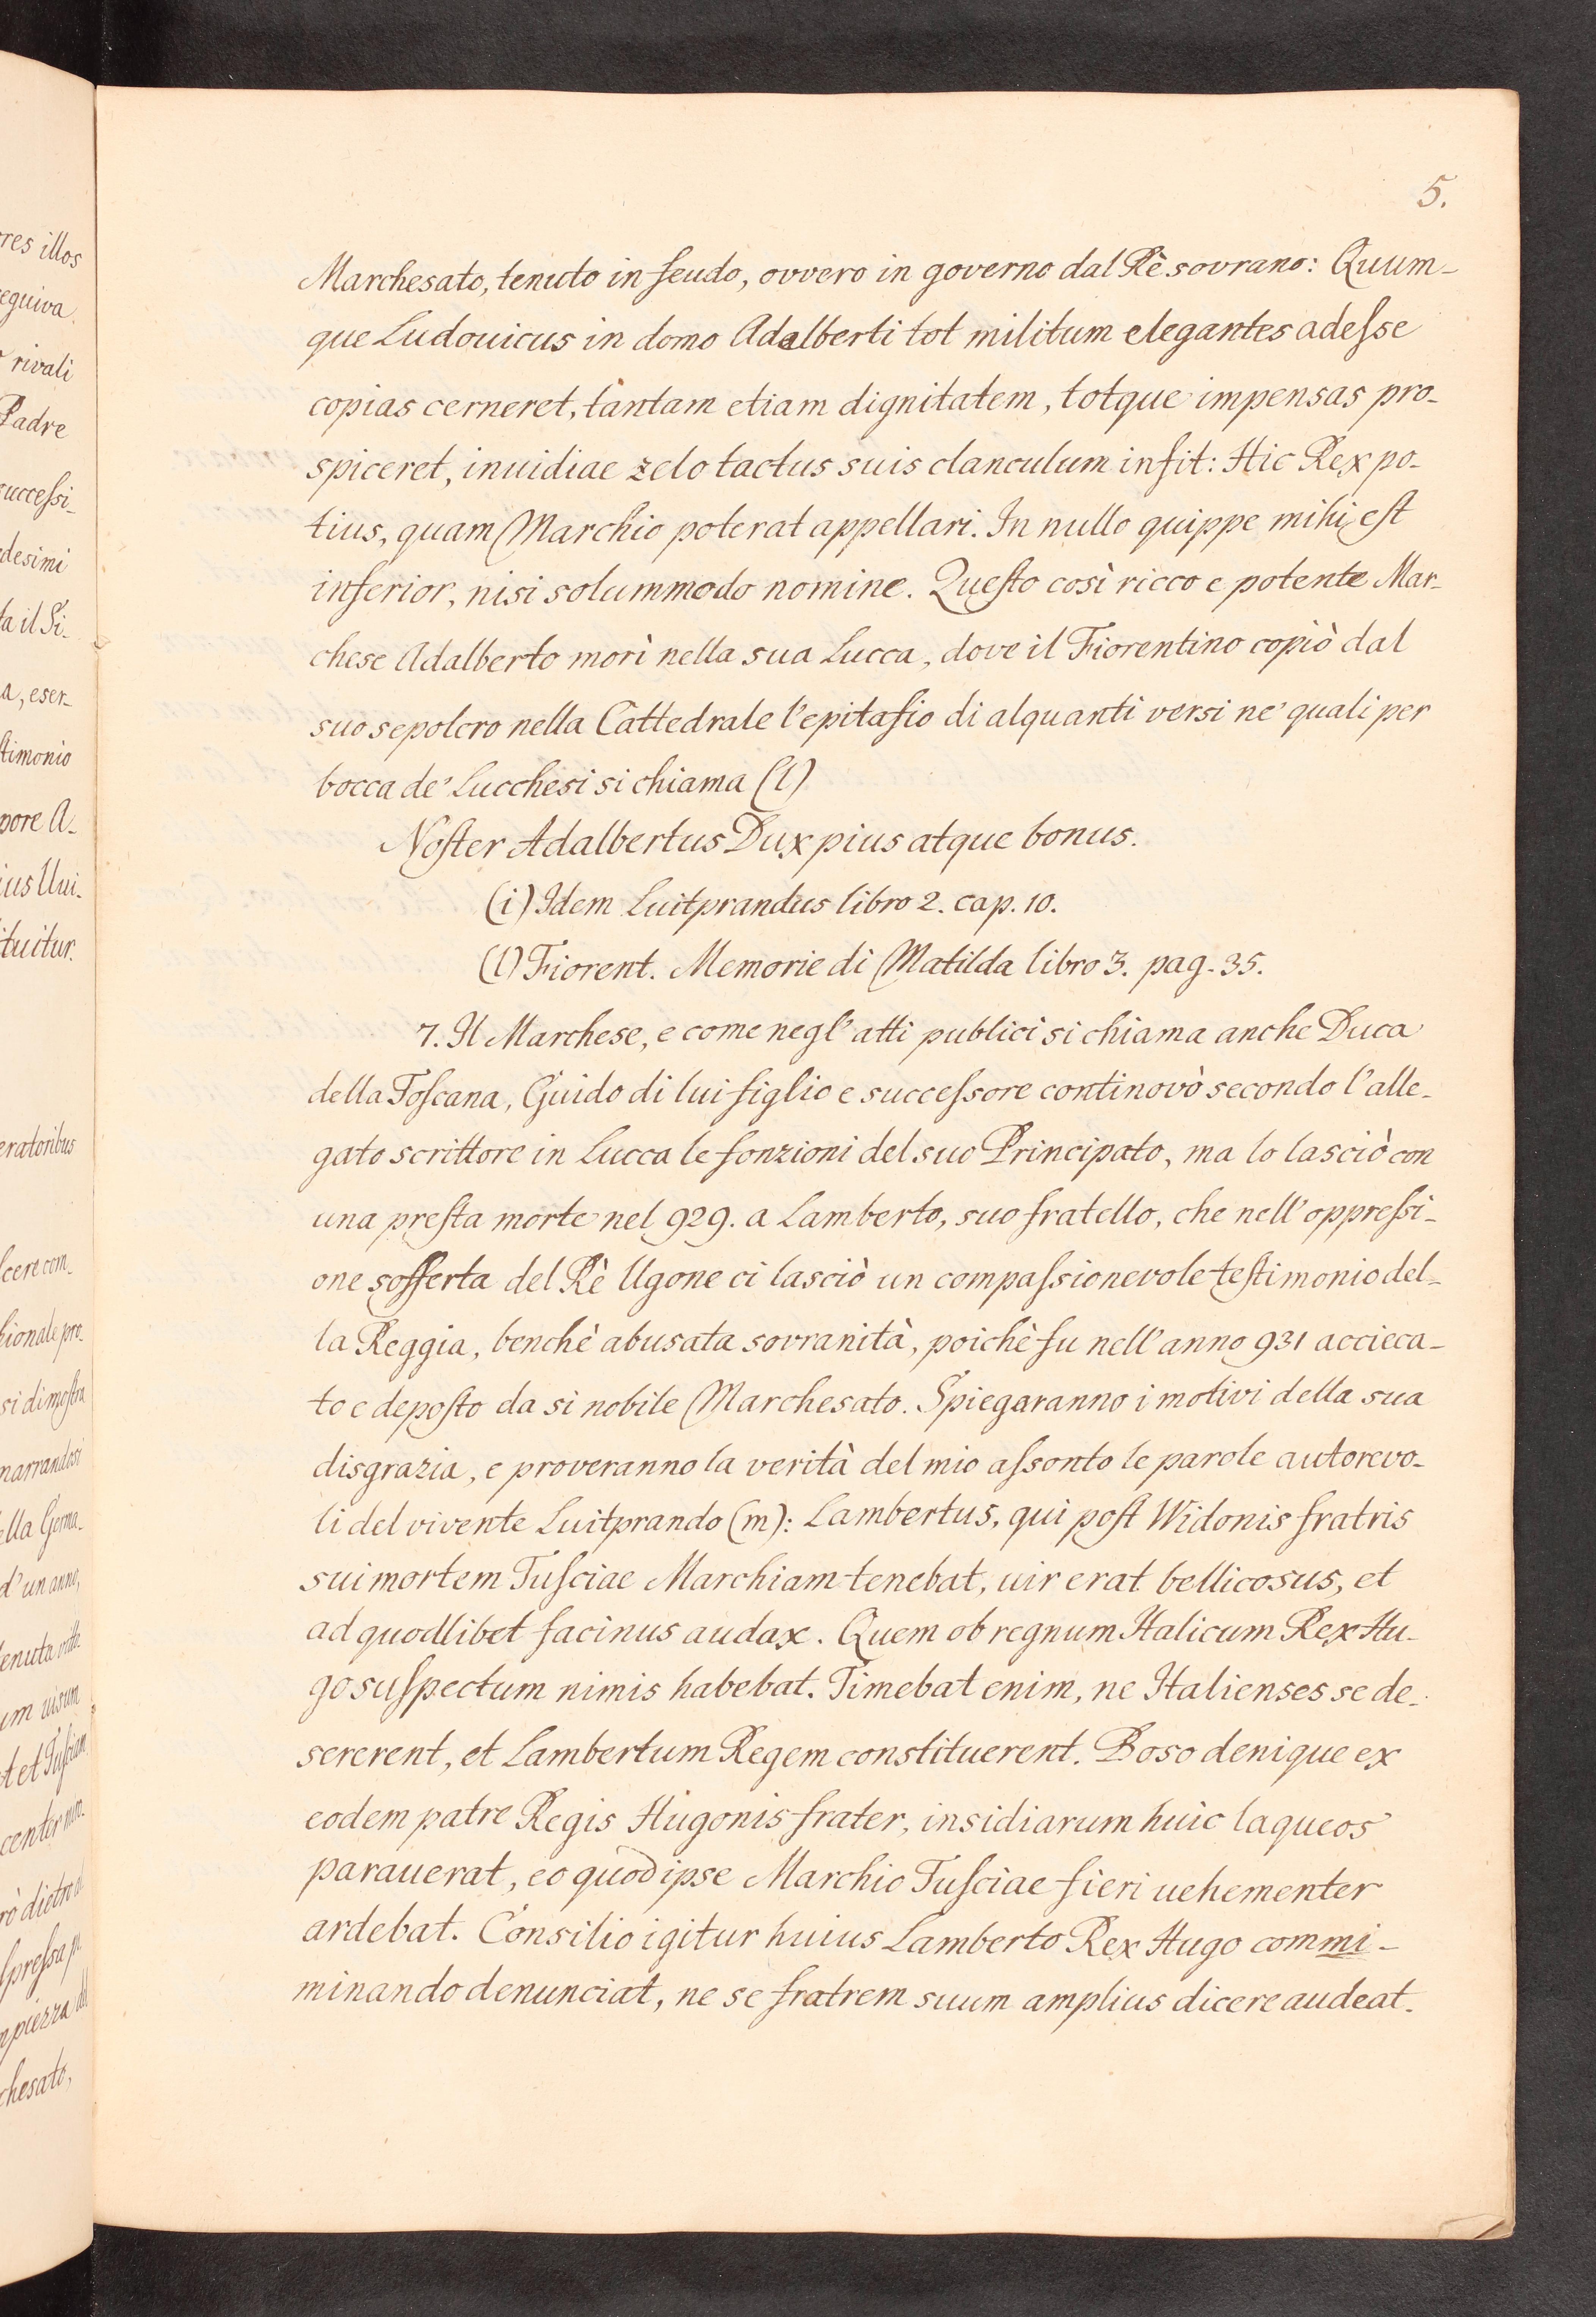 5.
Marchesato, tenuto in feudo, ovvero in governo dal Rè sovrano: Quum-
que Ludouicus in domo Adalberti tot militum elegantes adeſse
copias cerneret, tantam etiam dignitatem, totque impensas pro-
spiceret, inuidiae zelo tactus suis clanculum infit: Hic Rex po-
tius, quam Marchio poterat appellari. In nullo quippe mihi eſt
inferior, nisi solummodo nomine. Queſto così ricco e potente Mar-
chese Adalberto morì nella sua Lucca, dove il Fiorentino copiò dal
suo sepolcro nella Cattedrale l'epitafio di alquanti versi ne' quali per
bocca de' Lucchesi si chiama (l)
Noſter Adalbertus Dux pius atque bonus.
(i) Idem Luitprandus libro 2. cap. 10.
(l) Fiorent. Memorie di Matilda libro 3. pag. 35.
7. Il Marchese, e come negl' atti publici si chiama anche Duca
della Toſcana, Guido di lui figlio e succeſsore continovò secondo l'alle-
gato scrittore in Lucca le fonzioni del suo Principato, ma lo lasciò con
una preſta morte nel 929. a Lamberto, suo fratello, che nell' oppreſsi-
one sofferta del Rè Ugone ci lasciò un compaſsionevole teſtimonio del-
la Reggia, benchè abusata sovranità, poichè fu nell' anno 931 accieca-
to e depoſto da si nobile Marchesato. Spiegaranno i motivi della sua
disgrazia, e proveranno la verità del mio aſsonto le parole autorevo-
li del vivente Luitprando (m): Lambertus, qui poſt Widonis fratris
sui mortem Tuſciae Marchiam tenebat, uir erat bellicosus, et
ad quodlibet facinus audax. Quem ob regnum Italicum Rex Hu-
go suſpectum nimis habebat. Timebat enim, ne Italienses se de-
sererent, et Lambertum Regem constituerent. Boso denique ex
eodem patre Regis Hugonis frater, insidiarum huic laqueos
parauerat, eo quòd ipse Marchio Tuſciae fieri uehementer
ardebat. Consilio igitur huius Lamberto Rex Hugo commi-
minando denunciat, ne se fratrem suum amplius dicere audeat.